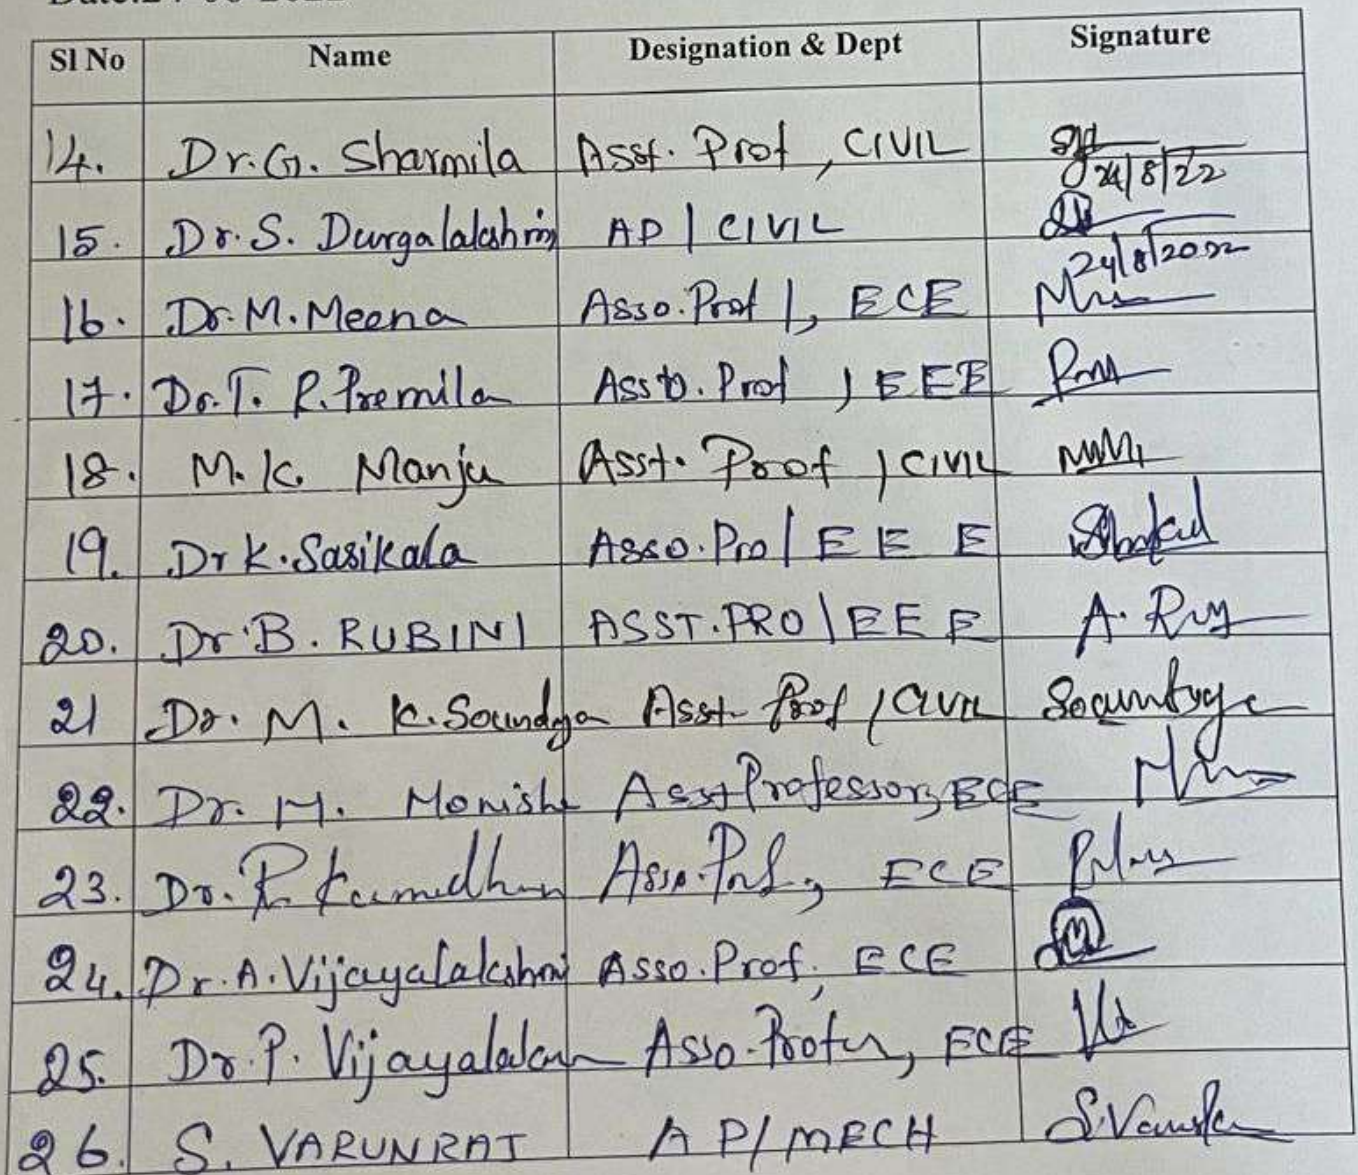 Sl No Name Designation & Dept Signature
14. Dr. G. Sharmila Asst. Prof, CIVIL
24/8/22
15. Dr. S. Durgalakshmi AP | CIVIL
24/8/2022
16. Dr. M. Meena Asso. Prof |, ECE
17. Dr. T. R. Premila Asso. Prof, EEE
18. M. K. Manju Asst. Prof, CIVIL
19. Dr K. Sasikala Asso. Pro / EEE
20. Dr B. RUBINI ASST. PRO | EEE A.
21 Dr. M. K. Soundya Asst Prof, CIVIL
22. Dr. M. Monish Asst Professor, ECE
23. Dr. R. Asso. Prof, ECE
24. Dr. A. Vijayalakshmi Asso. Prof, ECE
25. Dr. P. Asso. ECE
26. S. VARUNRAJ AP/MECH